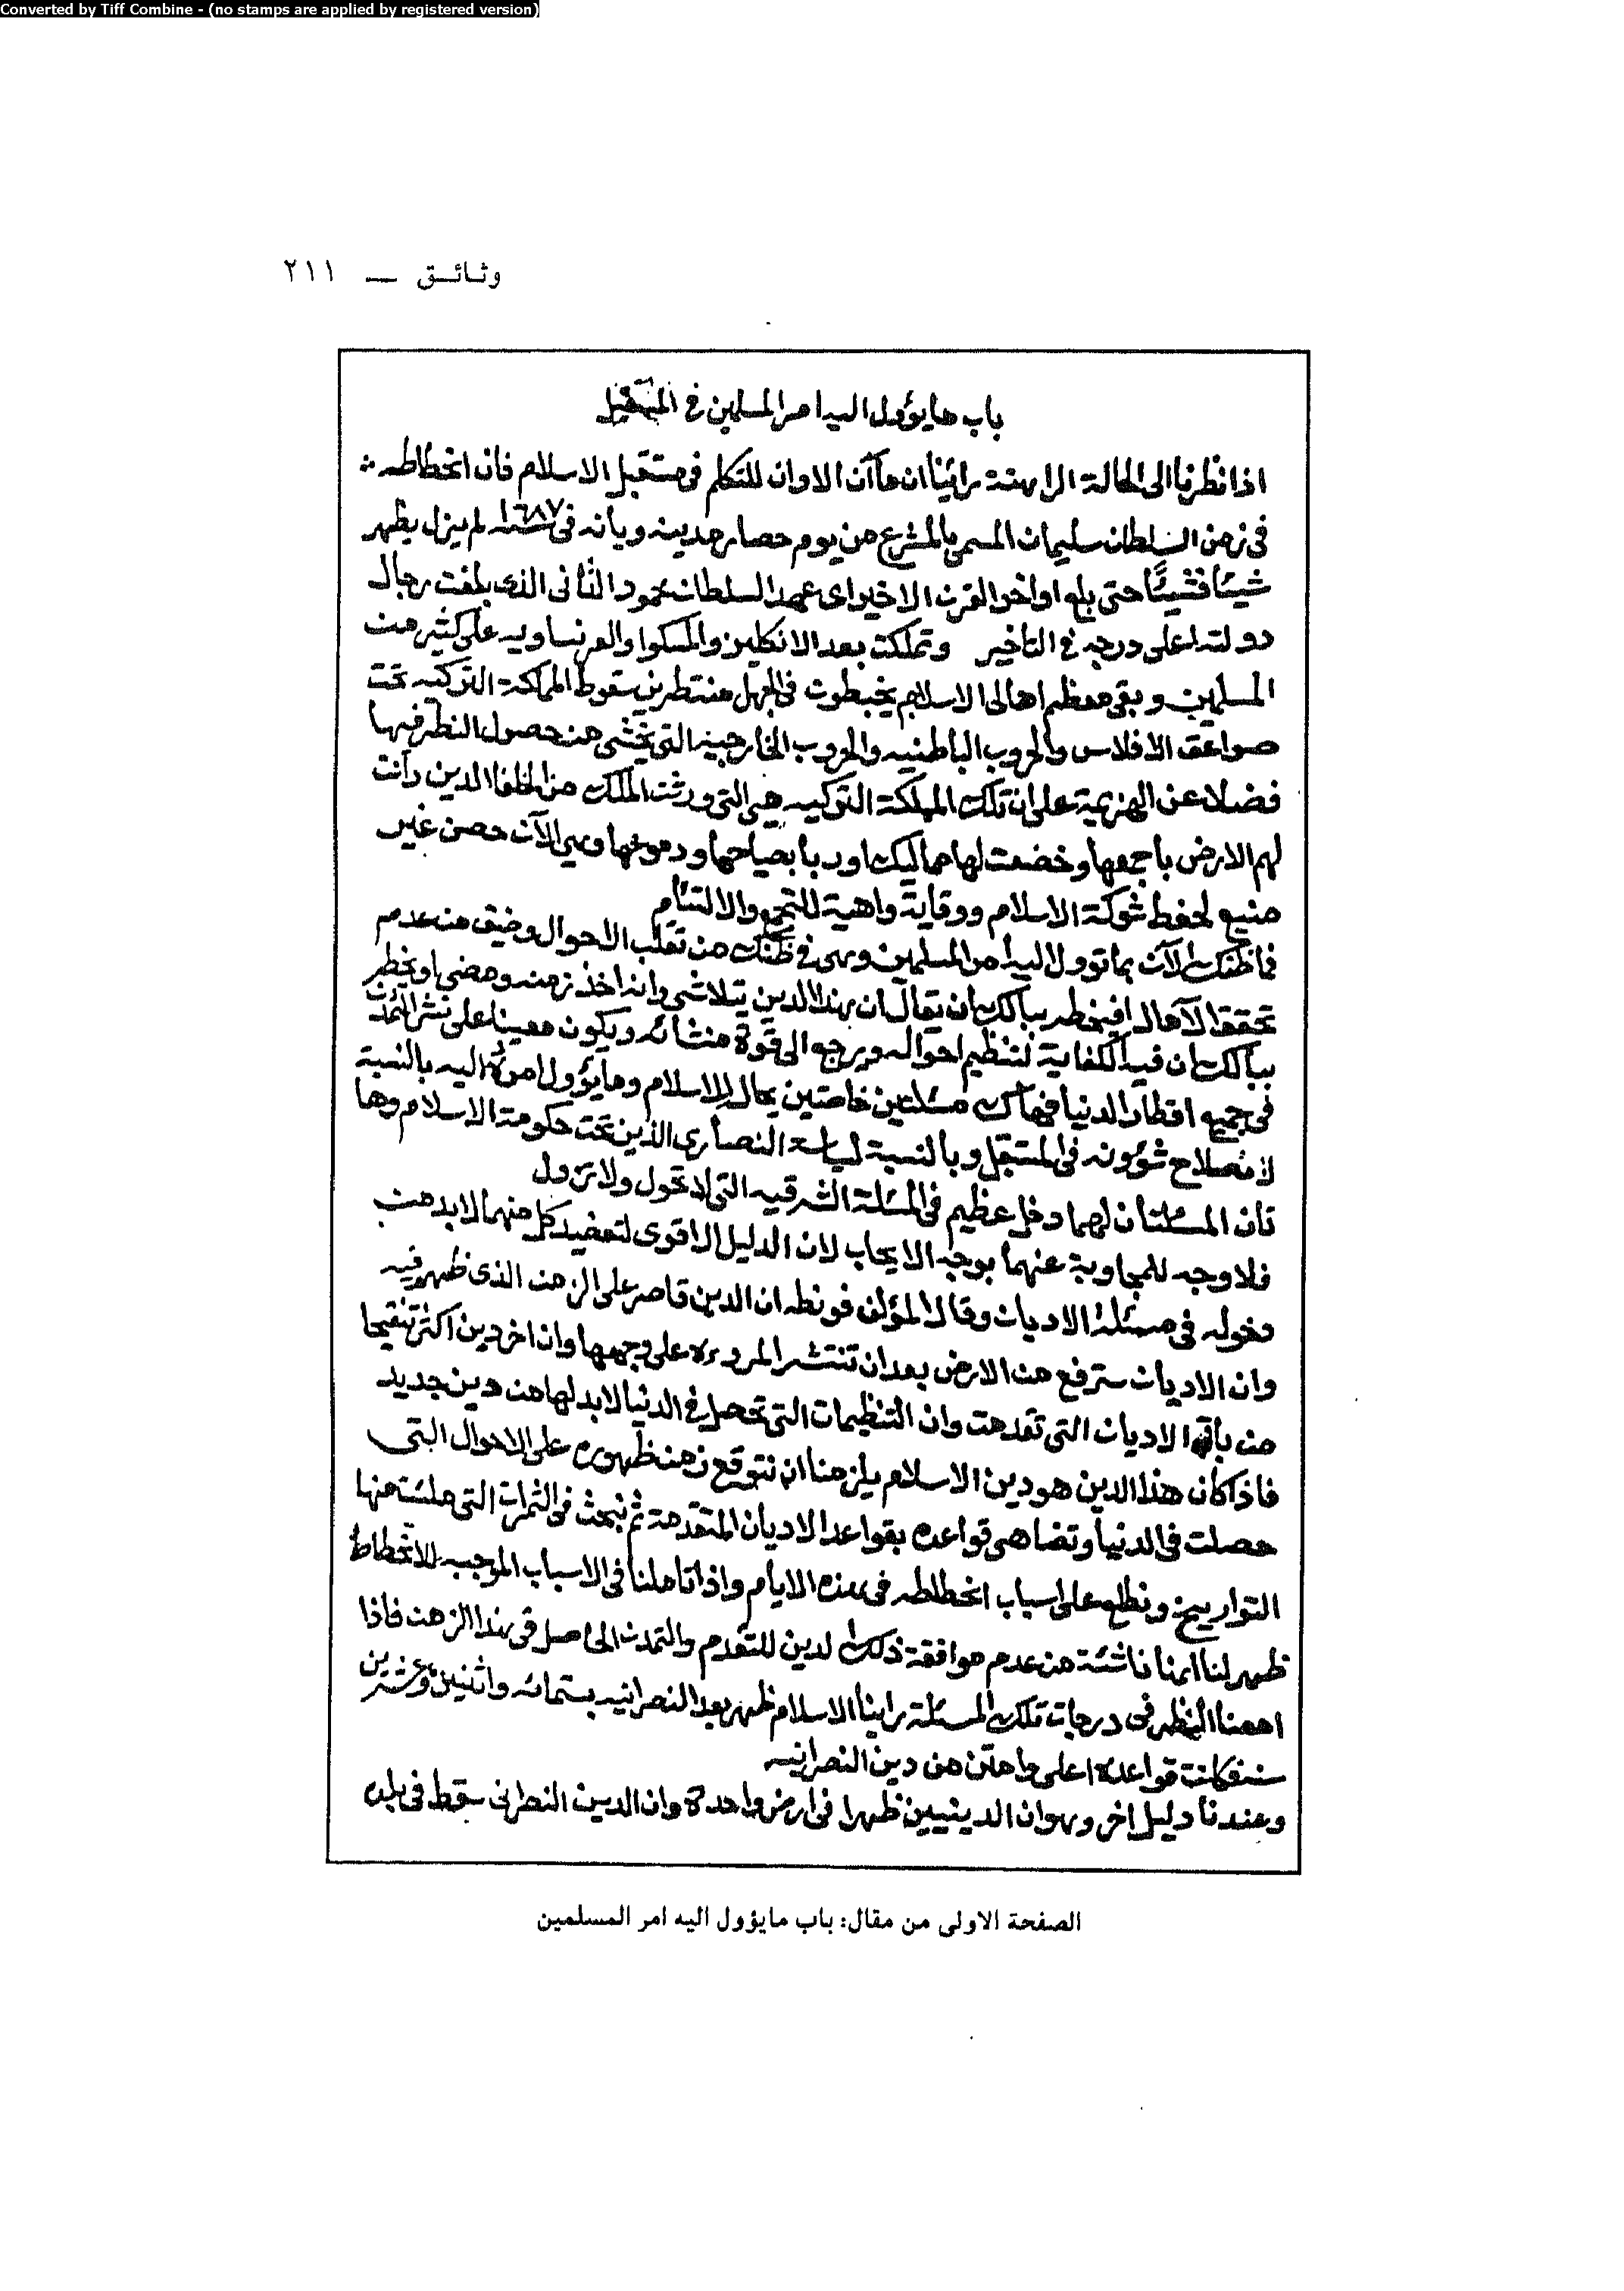 Converted by Tiff Combine - (no stamps are applied by registered version)
وثائق — ٢١١
باب ما يؤول اليه امر المسلمين في المستقبل
اذا نظرنا الى الحالة الراهنة رائينا ان ما آن الاوان للتكلم في مستقبل الاسلام فان انحطاطه
في زمن السلطان سليمان المسمى بالمشرع من يوم حصار مدينه ويانه في ١٦٨٧ سنة لم يزل يظهر
شيئا فشيئا حتى بلغ اواخر القرن الاخير اى عهد السلطان محمود الثاني الذي بلغت رجال
دولته اعلى درجه في التاخير وتملكت بعد الانكليز والمسكوا والفرنساويه على كثير من
المسلمين وبقى معظم اهالى الاسلام يخبطون في الجهل منتظرين سقوط المملكة التركيه تحت
صواعق الافلاس والحروب الباطنيه والحروب الخارجيه التي يخشى من حصول النظر فيها
فضلا عن الهزيمة على ان تلك المملكة التركيه هي التي ورثت الملك من الخلفا الدين دانت
لهم الارض باجمعها وخضعت لها ممالك اوربا بصياحها ودموعها وهي الآن حصن غير
منيع لحفظ شوكة الاسلام ووقاية واهية للتجمع والالتئام
فما ظنك الآن بما توول اليه امر المسلمين وهى في ظنك من تقلب الاحوال وضيق من عدم
تحقق الآمال افيخطر ببالك ان يقال ان هذا الدين يتلاشى وانه اخذ زمنه ومضى او يخطر
ببالك ان فيه الكفاية لتنظيم احواله ويرجع الى قوة منشائه ويكون معينا على نشر التمدن
في جميع اقطار الدنيا فهاك مسئلتين خاصتين بحال الاسلام وما يؤول امره اليه بالنسبة
لانصلاح شؤونه في المستقبل وبالنسبة لسياسة النصارى الذين تحت حكومة الاسلام وها
تان المسئلتان لهما دخل عظيم في المسئلة الشرقيه التي لا تحول ولا تزول
فلا وجه للمجاوبة عنهما بوجه الايجاب لان الدليل الاقوى لتعضيد كل منهما لابد من
دخوله في مسئلة الاديان وقال المؤلف فونطه ان الدين قاصر على الزمن الذى ظهر فيه
وان الاديان سترفع من الارض بعد ان تنتشر المروءه على وجهها وان اخر دين اكثر تنقيحا
من باقي الاديان التي تقدمت وان التنظيمات التي تحصل في الدنيا لابد لها من دين جديد
فاذا كان هذا الدين هو دين الاسلام يلزمنا ان نتوقع زمن ظهوره على الاحوال التي
حصلت في الدنيا وتضاهى قواعده بقواعد الاديان المتقدمة ثم نبحث في الثمرات التي ملئت منها
التواريخ ونطلع على اسباب انحطاطه في هذه الايام واذا تاملنا في الاسباب الموجبه للانحطاط
ظهر لنا انها ناشئة من عدم موافقة ذلك الدين للتقدم والتمدن الحاصل في هذا الزمن فاذا
امعنا النظر في درجات تلك المسئلة راينا الاسلام ظهر بعد النصرانيه بستمائه واثنين وعشرين
سنه فكانت قواعده اعلى وامتن من دين النصرانيه
وعندنا دليل اخر وهو ان الدينيين ظهرا في ارض واحدة وان الدين النصراني سقط في بلد
الصفحة الاولى من مقال: باب مايؤول اليه امر المسلمين